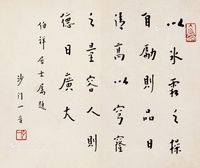 以冰霜之操
自勵則品日
清高以穹窿
之量容人則
德日廣大
伯祥居士屬題
沙門一音